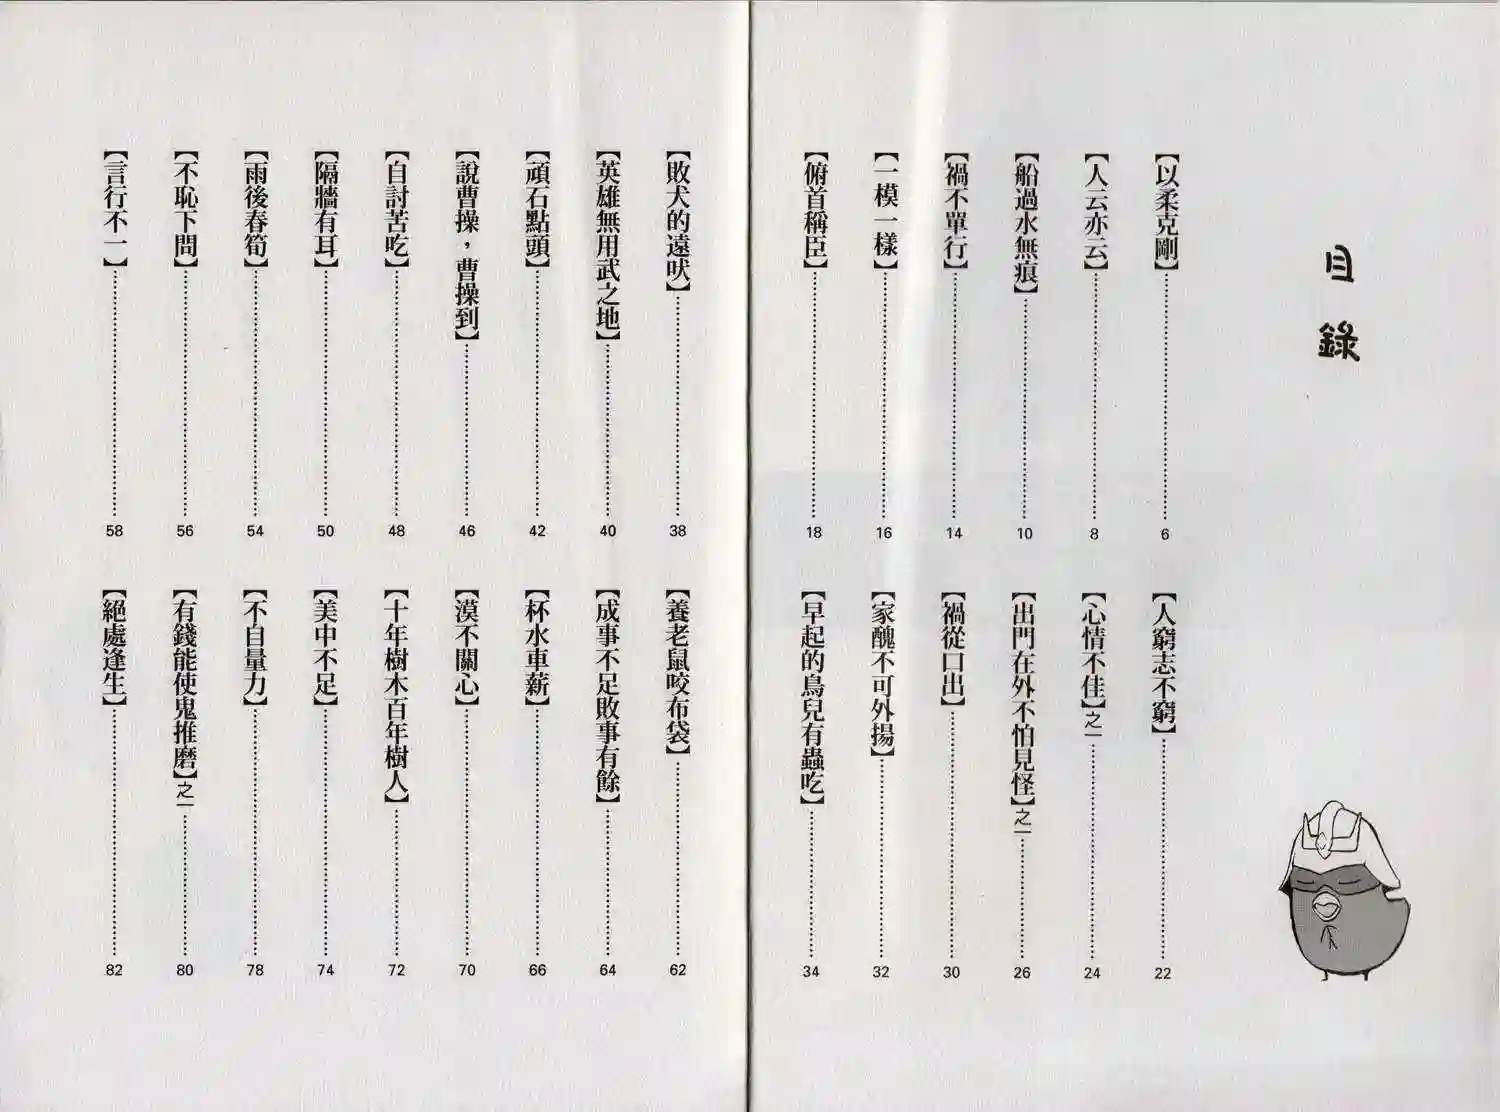 目錄
【以柔克剛】……6
【人云亦云】……8
【船過水無痕】……10
【禍不單行】……14
【一模一樣】……16
【俯首稱臣】……18
【人窮志不窮】……22
【心情不佳】之一……24
【出門在外不怕見怪】之一……26
【禍從口出】……30
【家醜不可外揚】……32
【早起的鳥兒有蟲吃】……34
【敗犬的遠吠】……38
【英雄無用武之地】……40
【頑石點頭】……42
【說曹操，曹操到】……46
【自討苦吃】……48
【隔牆有耳】……50
【雨後春筍】……54
【不恥下問】……56
【言行不一】……58
【養老鼠咬布袋】……62
【成事不足敗事有餘】……64
【杯水車薪】……66
【漠不關心】……70
【十年樹木百年樹人】……72
【美中不足】……74
【不自量力】……78
【有錢能使鬼推磨】之一……80
【絕處逢生】……82